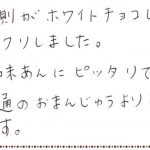 側がホワイトチョコレ
クリしました。
味あんにピッタリで
通のおまんじゅうより
す。